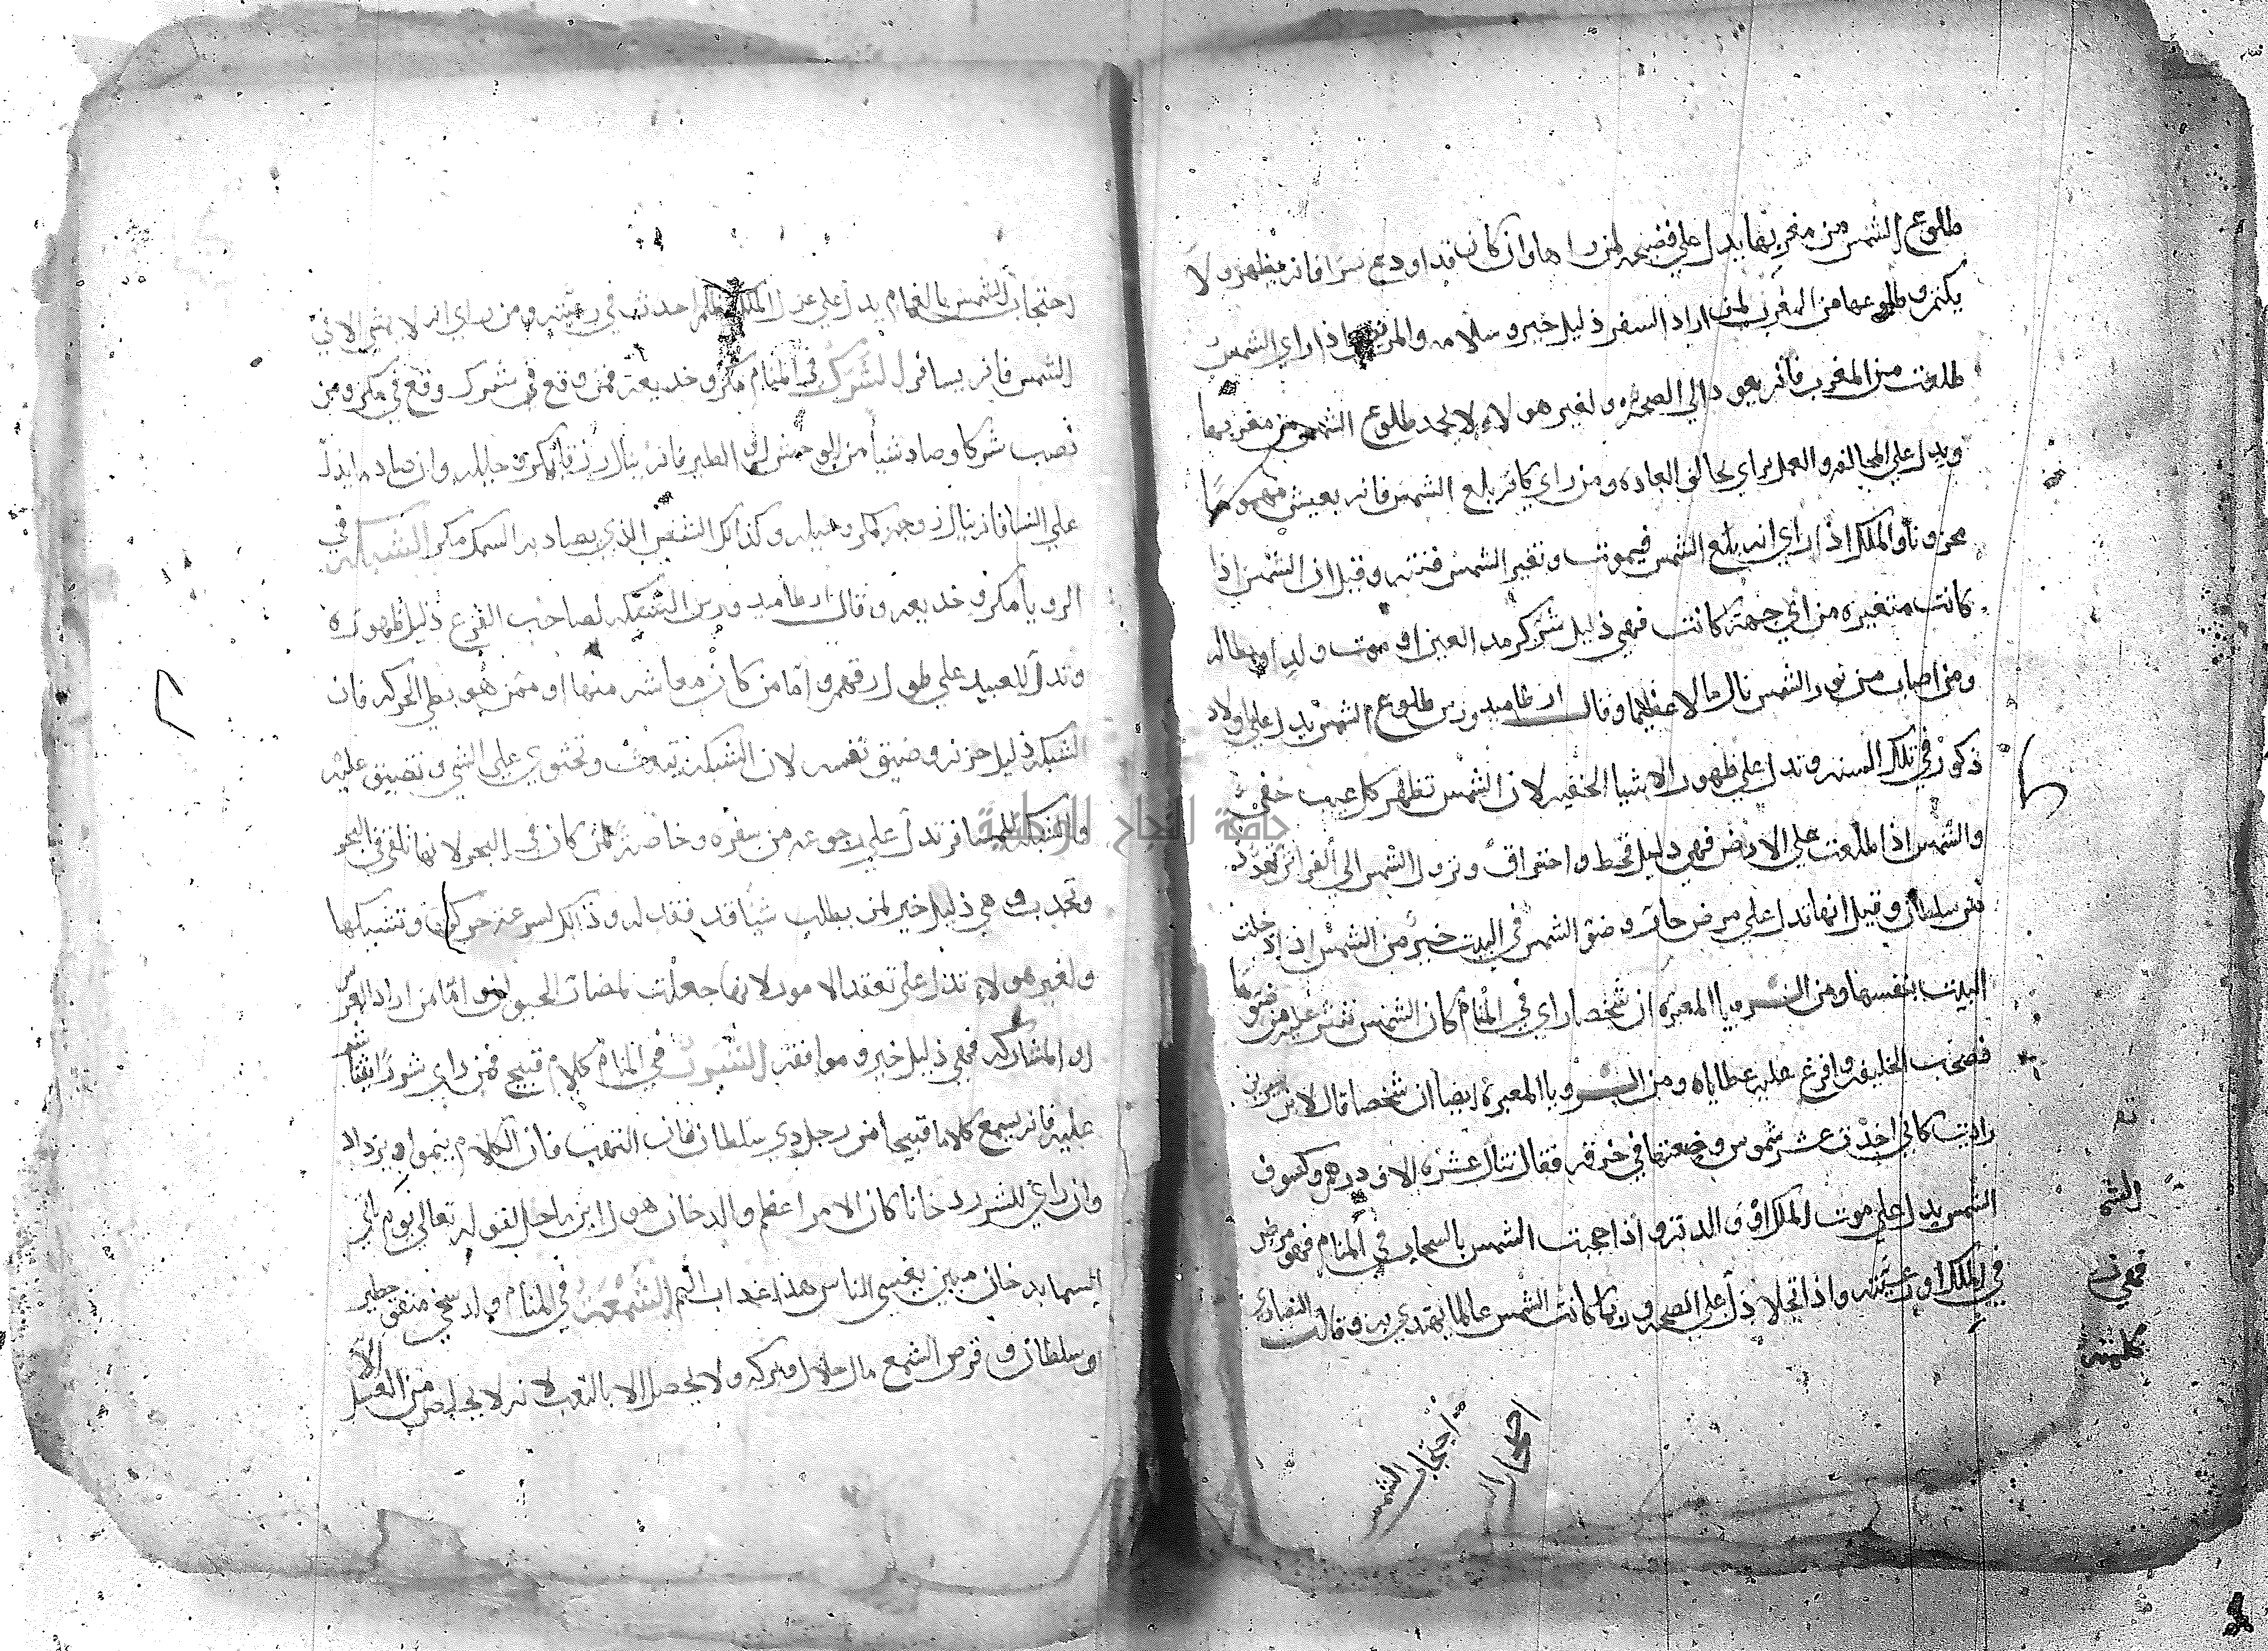 طلوع الشمس من مغربها يدل علي فضيحه لمن راها وان كان قد اودع سرا فانه يظهر ولا
يكتم وطلوعها من المغرب لمن اراد السفر دليل خير وسلامه والمريض اذا راي الشمس
طلعت من المغرب فانه يعود الي الصحه ولغير هولاء لا يحمد طلوع الشمس من مغربها
ويدل علي المخالفه والعمل براي يخالف العاده ومن راي كانه بلع الشمس فانه يعيش مهموما
محزونا والملك اذا راي انه بلع الشمس فيموت وتغير الشمس فتنه وقيل ان الشمس اذا
كانت متغيره من اي جهة كانت فهي دليل شر كرمد العين او موت ولد او بطاله
ومن اصاب من نور الشمس نال مالا عظيما وقال ارطاميدورس طلوع الشمس يدل علي اولاد
ذكور في تلك السنه وتدل علي ظهور الاشيا الخفيه لان الشمس تظهر كل عيب خفي
والشمس اذا طلعت علي الارض فهي دليل قحط واحتراق ونزول الشمس الي الفراش تهدد
من سلطان وقيل انها تدل علي مرض حار وضو الشمس في البيت خير من الشمس اذا دخلت
البيت بنفسها ومن الرويا المعبره ان شخصا راي في المنام كان الشمس تنثر عليه من ضوها
فصحب الخليفه وافرغ عليه عطاياه ومن الرويا المعبره ايضا ان شخصا قال لابن سيرين
رايت كاني اخذت عشر شموس وضعتها في خرقه فقال تنال عشره الاف درهم وكسوف
الشمس يدل علي موت الملك او الد تزو اذا حجبت الشمس بالسحاب في المنام فهو مرض
في الملك او رعيته واذا انجلا دل علي الصحه وربما كانت الشمس عالما يهتدي به وقالت النصاري
احتجاب الشمس
احتجاب الشمس بالغمام يدل علي عزل الملك ظلم احدث في رعيته ومن راي انه لا يمشي الا في
الشمس فانه يسافر الشرك في المنام مكر وخديعة فمن وقع في شرك وقع في مكر ومن
نصب شركا وصاد شيا من الوحش او الطير فانه ينال رزقا بمكر وحايله وان صاد ما يدل
علي النسا فانه ينال زوجه بمكر وحيله وكذلك الشص الذي يصاد به السمك مكر الشبكه في
الرويا مكر وخديعه وقال ارطاميدورس الشبكه لصاحب الفزع دليل ظهوره
وتدل للعبيد علي طول رقهم واما من كان معاشه منها او ممن هو بطي الحركه فان
الشبكه دليل حزنه وضيق نفسه لان الشبكه تمد وتحتوي علي الشي وتضيق عليه
والشبكه للمسافر تدل علي رجوعه من سفره وخاصة لمن كان في البحر لانها تلقي في البحر
وتجدب وهي دليل خير لمن يطلب شيا قد فقد له وذالك لسرعة حركتها وتشبيكها
ولغير هولاء تدل علي تعقد الامور لانها جعلت لمضاد الحيوان واما من اراد العرس
او المشاركه فهي دليل خير وموافقه الشرر في المنام كلام قبيح فمن راي شررا يتناثر
عليه فانه يسمع كلاما قبيحا من رجل ذي سلطان فان التهب فان الكلام ينموا ويزداد
وان راي للشرر دخانا كان الامر اعظم والدخان هول ابن ماحل لقوله تعالي يوم تاتي
السما بدخان مبين يغشي الناس هذا عذاب اليم الشمعه في المنام ولد سخي متقي خطير
وسلطان وقرص الشمع مال حلال وبركه ولا يحصل الا بالتعب لانه لا يخلص من العسل الا